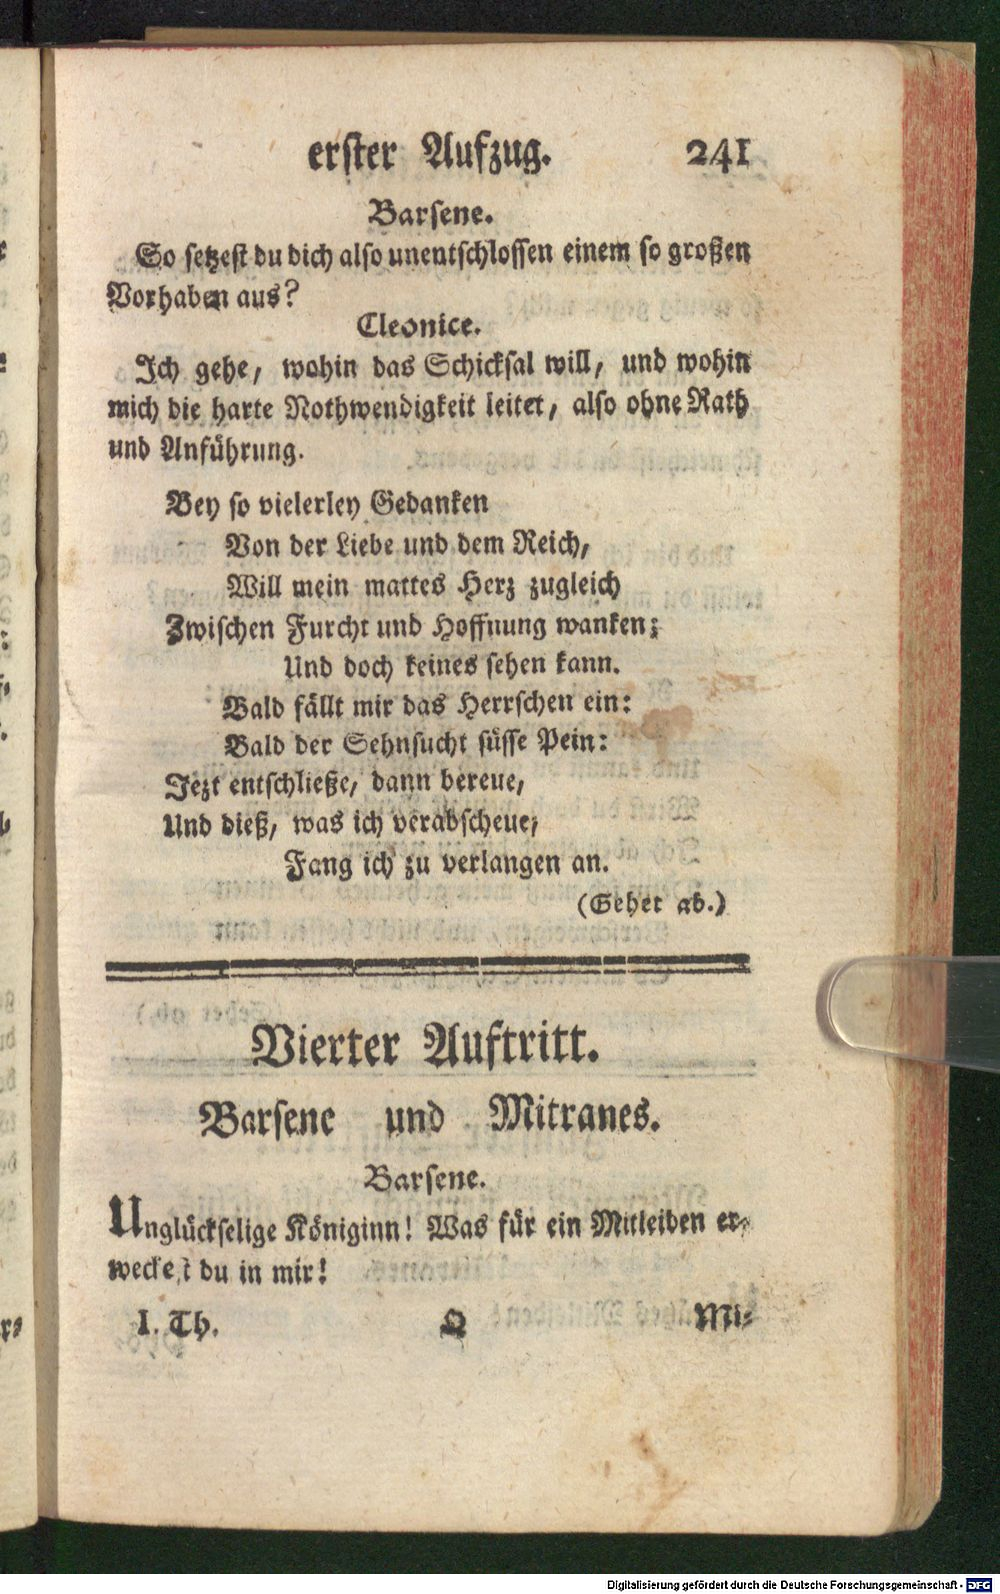 erster Aufzug. 241
Barsene.
So setzest du dich also unentschlossen einem so großen
Vorhaben aus?
Cleonice.
Ich gehe, wohin das Schicksal will, und wohin
mich die harte Nothwendigkeit leitet, also ohne Rath
und Anführung.
Bey so vielerley Gedanken
Von der Liebe und dem Reich,
Will mein mattes Herz zugleich
Zwischen Furcht und Hoffnung wanken;
Und doch keines sehen kann.
Bald fällt mir das Herrschen ein:
Bald der Sehnsucht süsse Pein:
Jezt entschließe, dann bereue,
Und dieß, was ich verabscheue,
Fang ich zu verlangen an.
(Gehet ab.)
Vierter Auftritt.
Barsene und Mitranes.
Barsene.
Unglückselige Königinn! Was für ein Mitleiden er-
weckest du in mir!
I. Th. Q Mi-
Digitalisierung gefördert durch die Deutsche Forschungsgemeinschaft - DFG